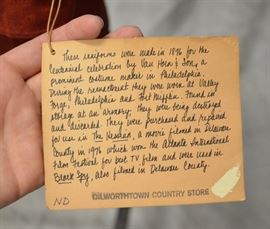 These uniforms were made in 1876 for the
Centennial celebration by Van Horn & Son, a
prominent costume maker in Philadelphia.
During the reenactment they were worn at Valley
Forge, Philadelphia and Fort Mifflin. Found in
storage at an armory; they were being destroyed
and discarded. They were purchased and repaired
for use in The Hessian, a movie filmed in Delaware
County in 1976 which won the Atlanta International
Film Festival for best TV film and were used in
Brady Spy, also filmed in Delaware County.
ND
DILWORTHTOWN COUNTRY STORE